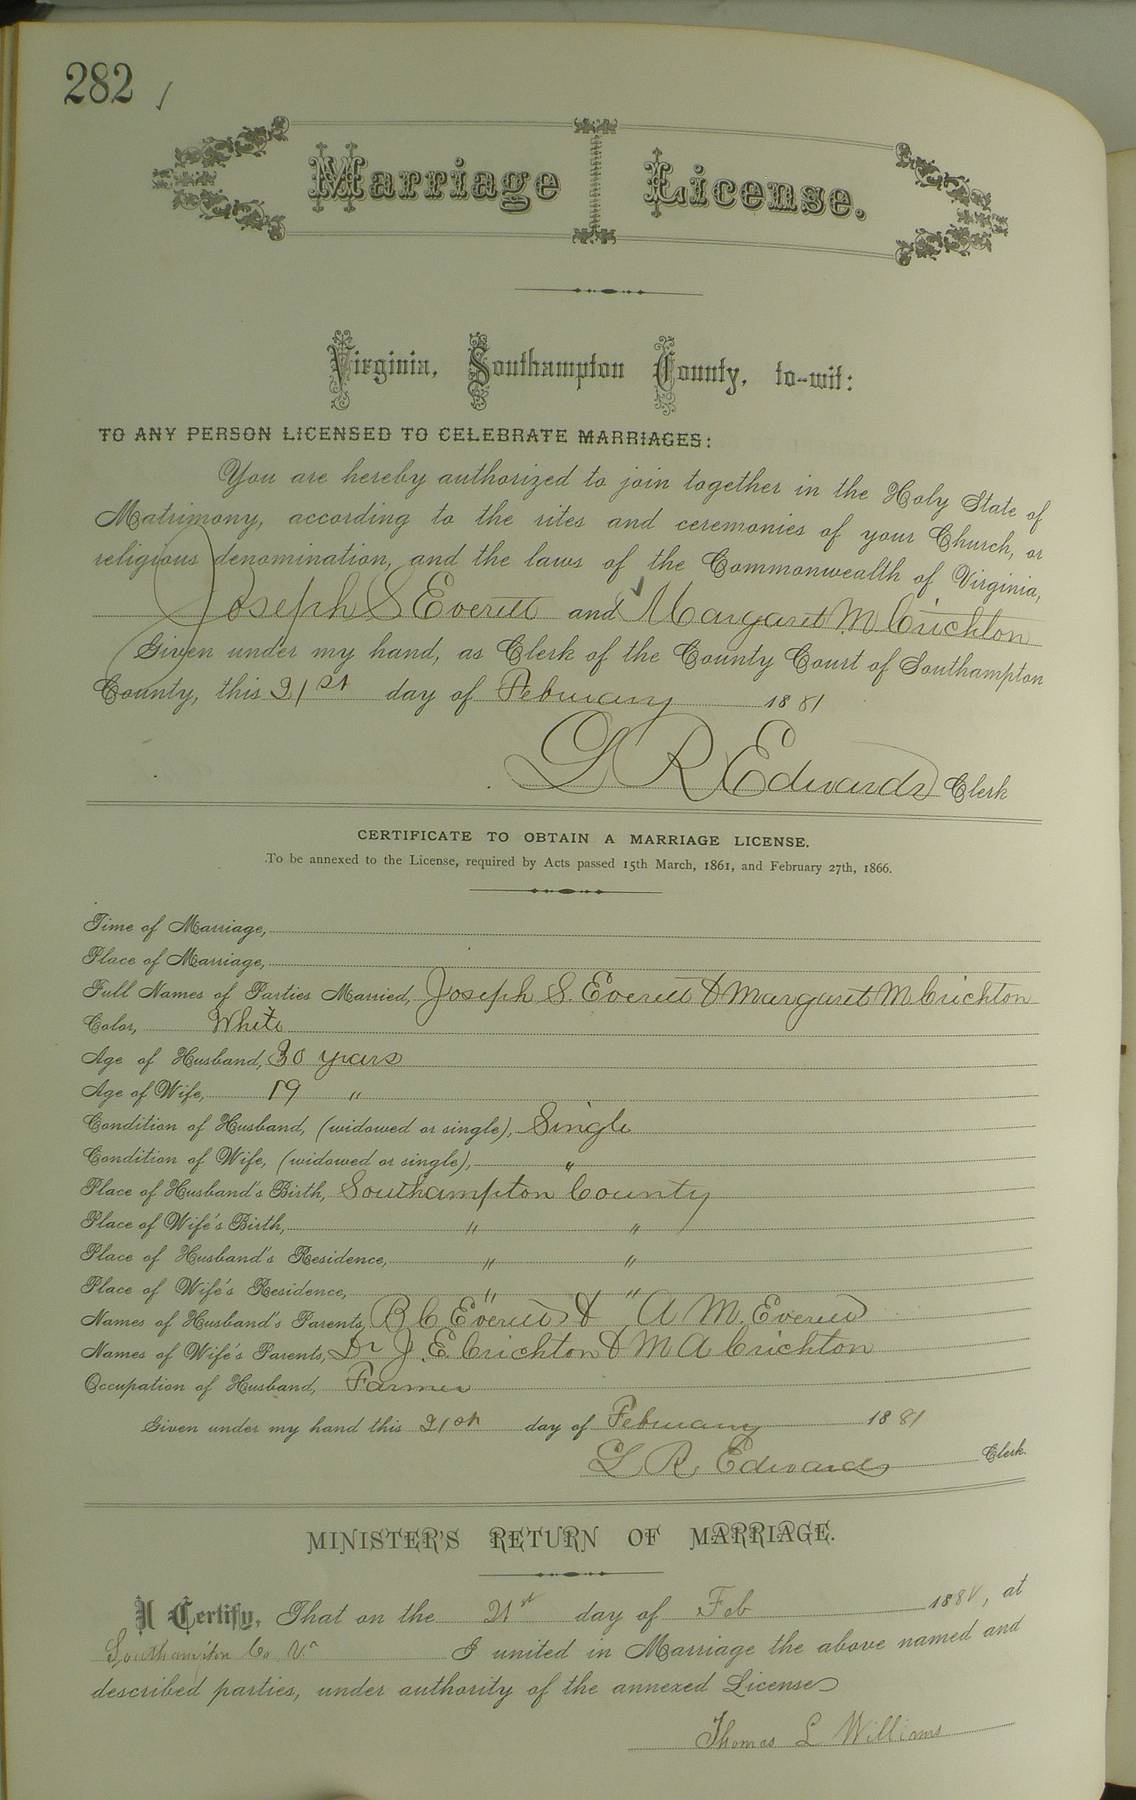 282
Marriage License.
Virginia, Southampton County, to-wit:
TO ANY PERSON LICENSED TO CELEBRATE MARRIAGES:
You are hereby authorized to join together in the Holy State of
Matrimony, according to the rites and ceremonies of your Church, or
religious denomination, and the laws of the Commonwealth of Virginia,
Joseph S Everett and Margaret M Crichton
Given under my hand, as Clerk of the County Court of Southampton
County, this 21st day of February 1881
L R Edwards Clerk
CERTIFICATE TO OBTAIN A MARRIAGE LICENSE.
To be annexed to the License, required by Acts passed 15th March, 1861, and February 27th, 1866.
Time of Marriage,
Place of Marriage,
Full Names of Parties Married, Joseph S. Everett & Margaret M Crichton
Color, White
Age of Husband, 30 years
Age of Wife, 19 "
Condition of Husband, (widowed or single), Single
Condition of Wife, (widowed or single), "
Place of Husband's Birth, Southampton County
Place of Wife's Birth, " "
Place of Husband's Residence, " "
Place of Wife's Residence, " "
Names of Husband's Parents, B C Everett & A M Everett
Names of Wife's Parents, Dr J. E Crichton & M A Crichton
Occupation of Husband, Farmer
Given under my hand this 21st day of February 1881
L R Edwards Clerk.
MINISTER'S RETURN OF MARRIAGE.
I Certify, That on the 21st day of Feb 1881, at
Southampton Co Va I united in Marriage the above named and
described parties, under authority of the annexed License
Thomas L Williams